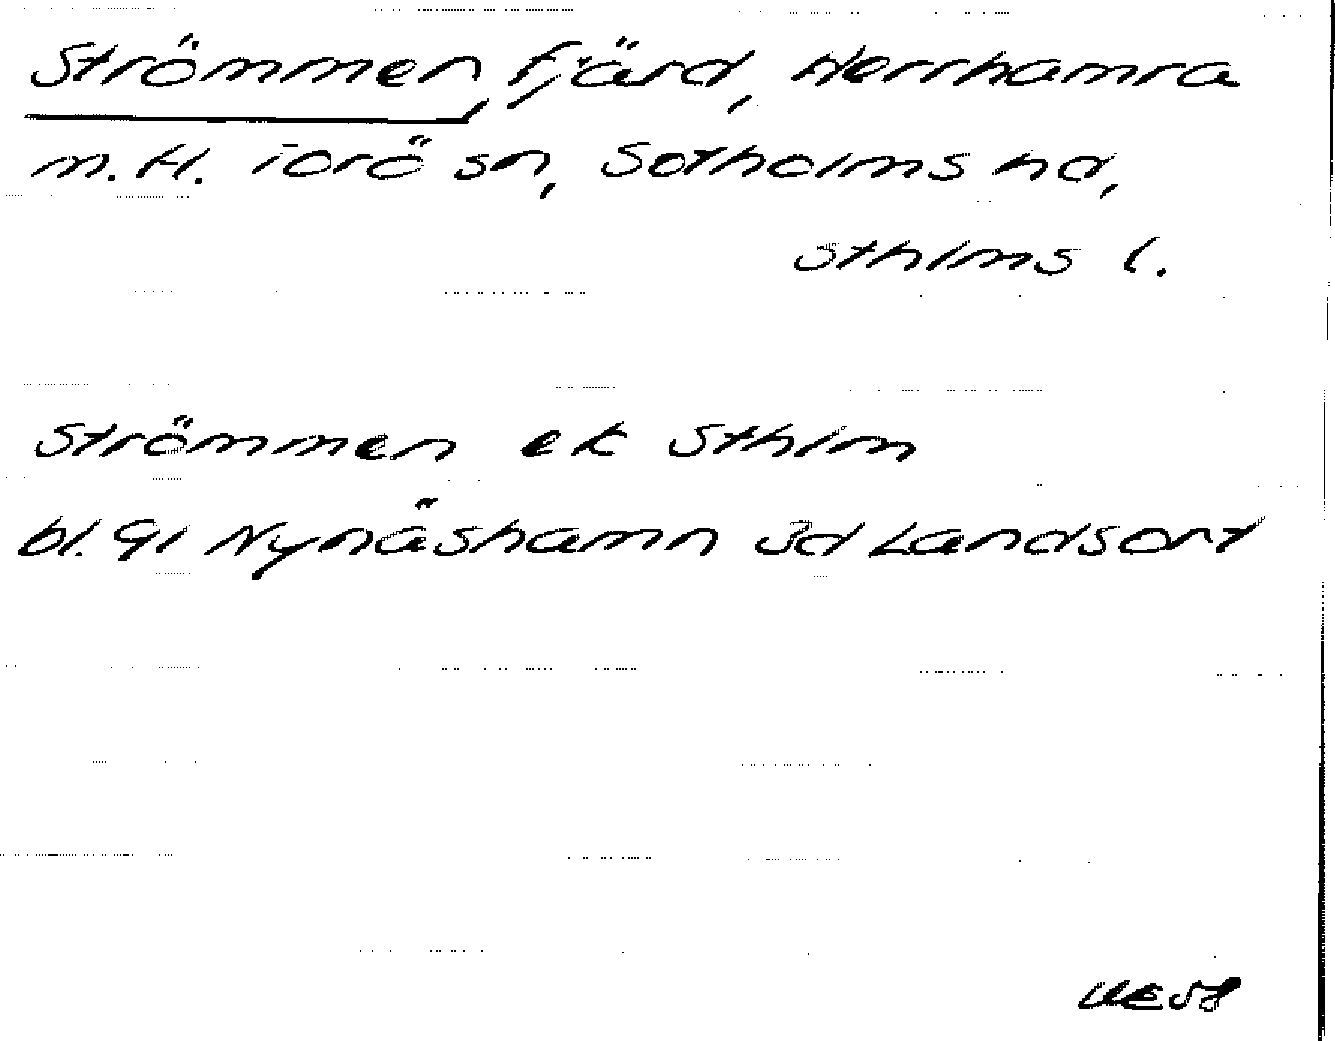 Strömmen, fjärd, Herrhamra
m.fl. Torö sn, Sotholms hd,
Sthlms l.
Strömmen ek Sthlm
bl. 91 Nynäshamn 3d Landsort
UE58